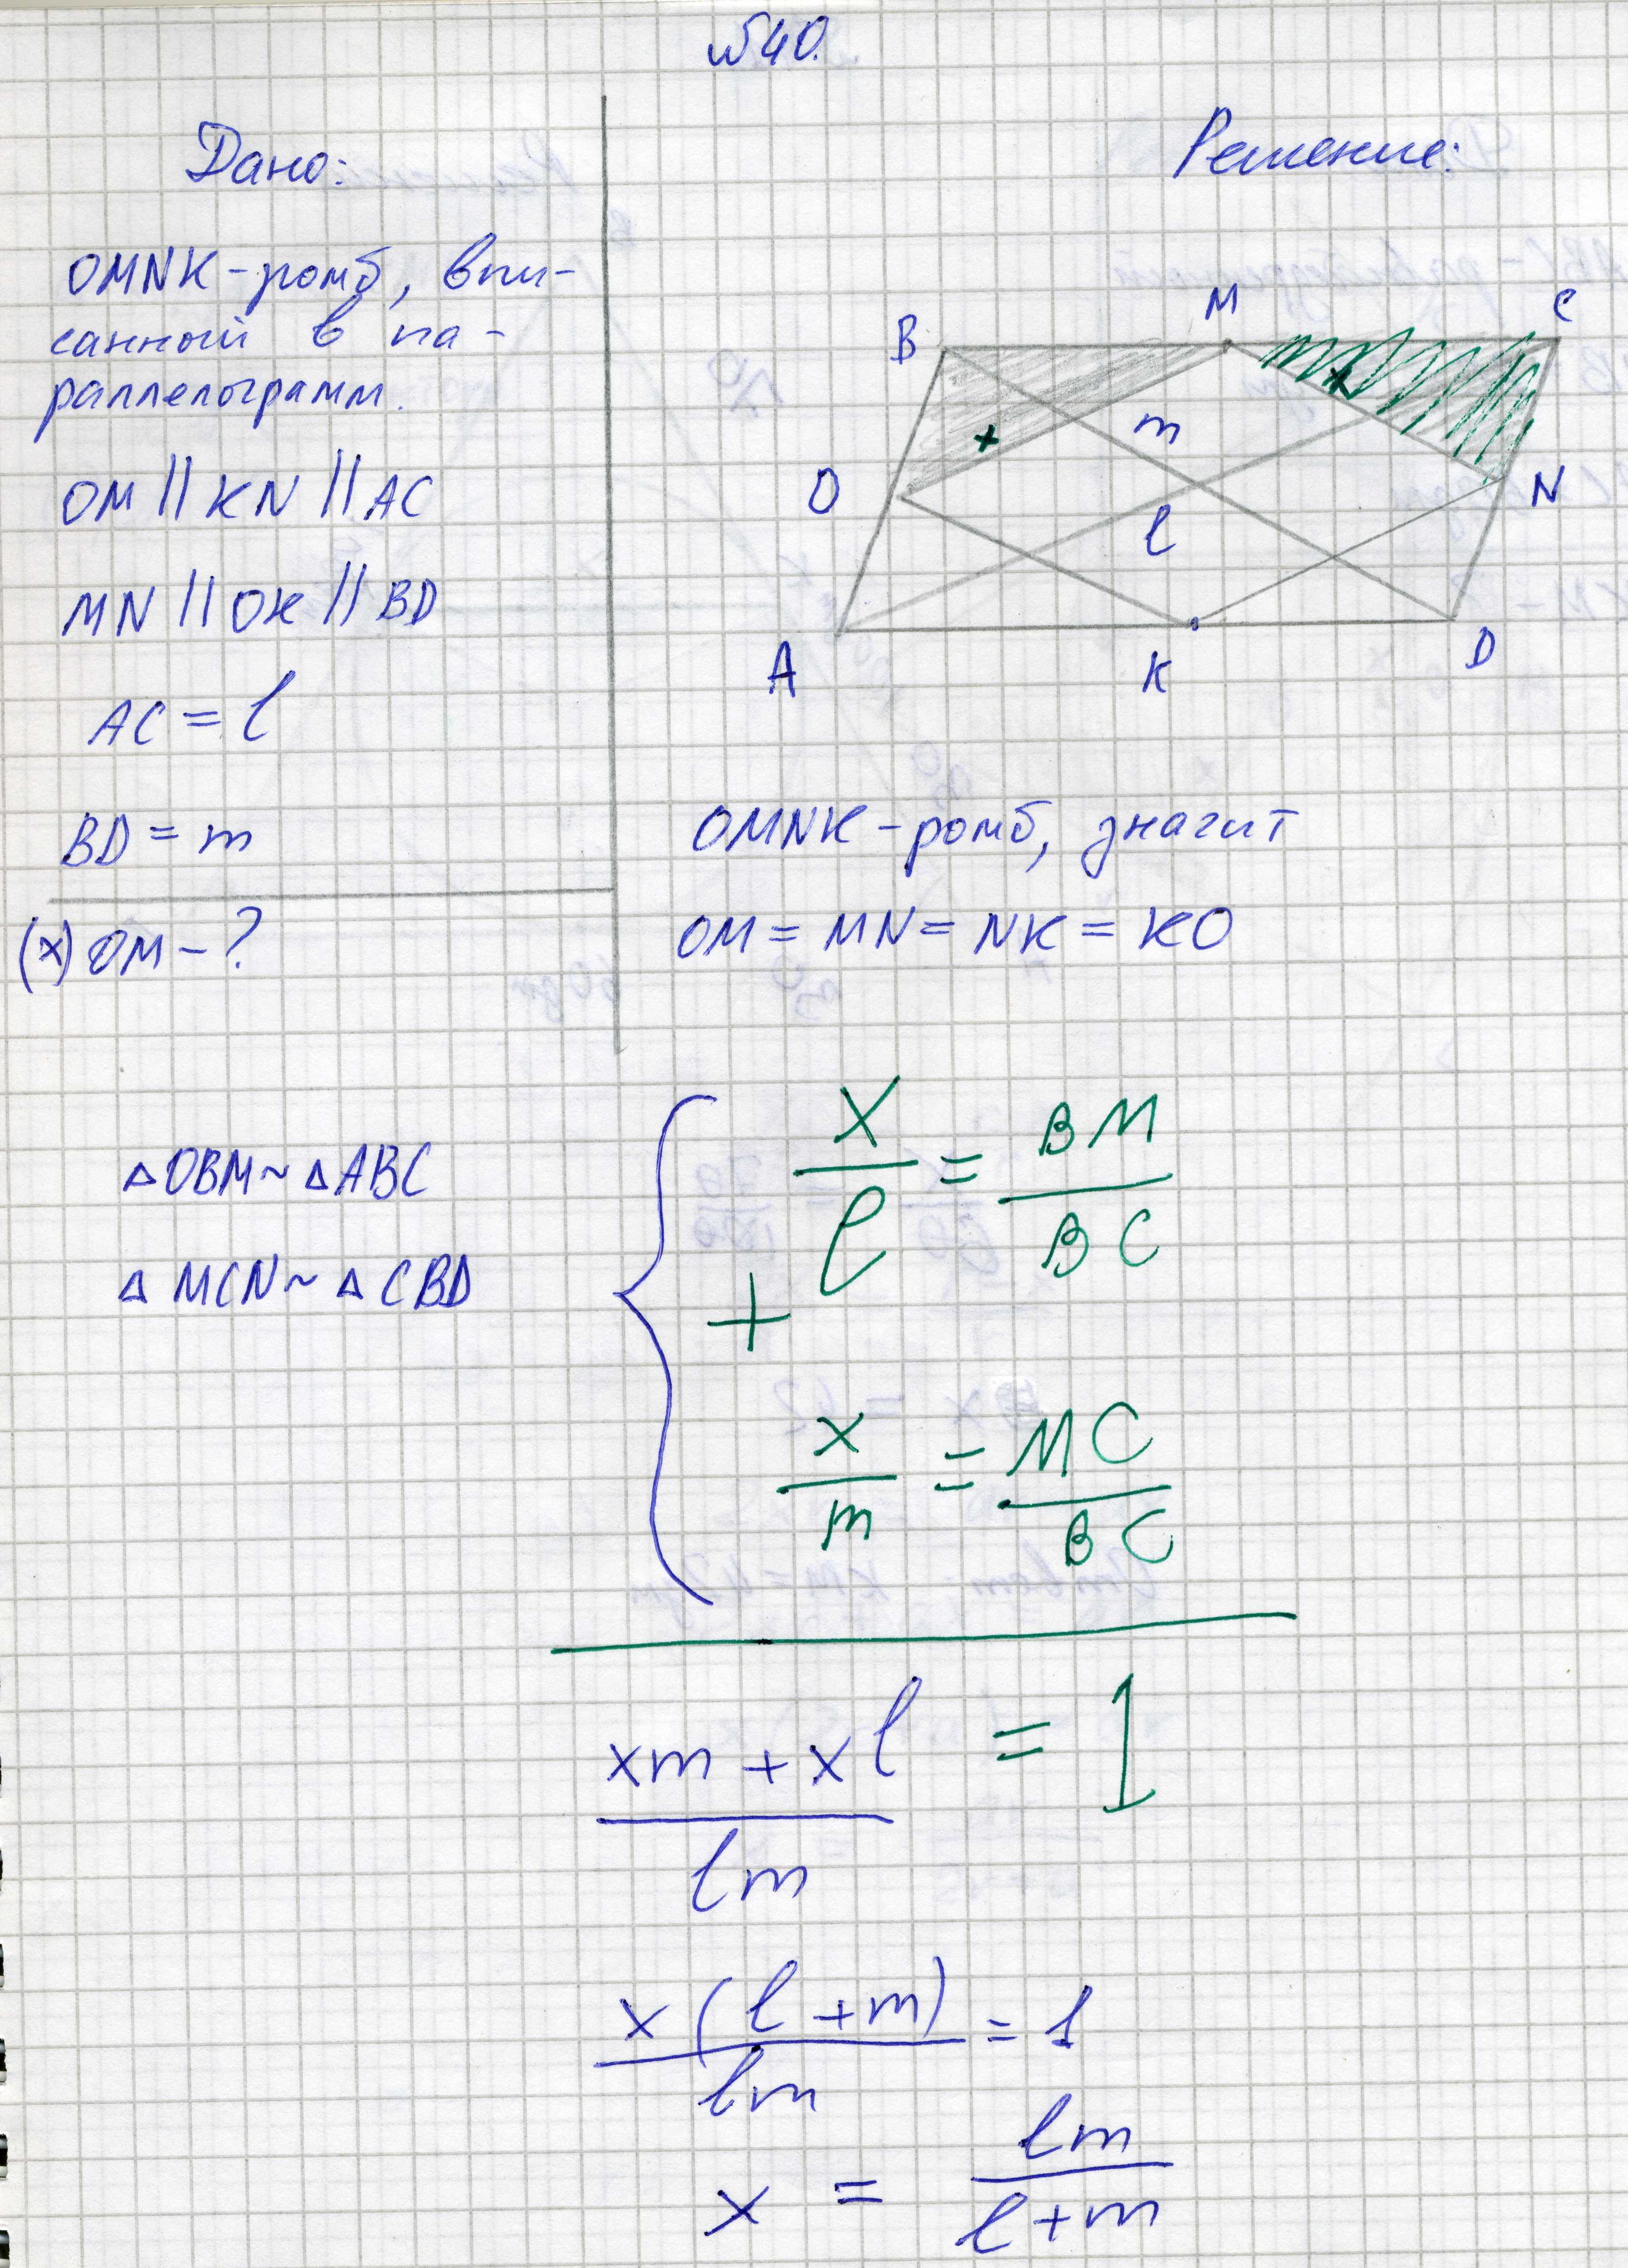 №40.
Дано:
OMNK-ромб, впи-
санный в па-
раллелограмм.
OM || KN || AC
MN || OK || BD
AC = l
BD = m
(x) OM - ?
Решение:
B M C
m
O N
l
A K D
OMNK-ромб, значит
OM = MN = NK = KO
△OBM ~ △ABC
△MCN ~ △CBD
x/l = BM/BC
+
x/m = MC/BC
(xm + xl)/lm = 1
x(l+m)/lm = 1
x = lm/(l+m)